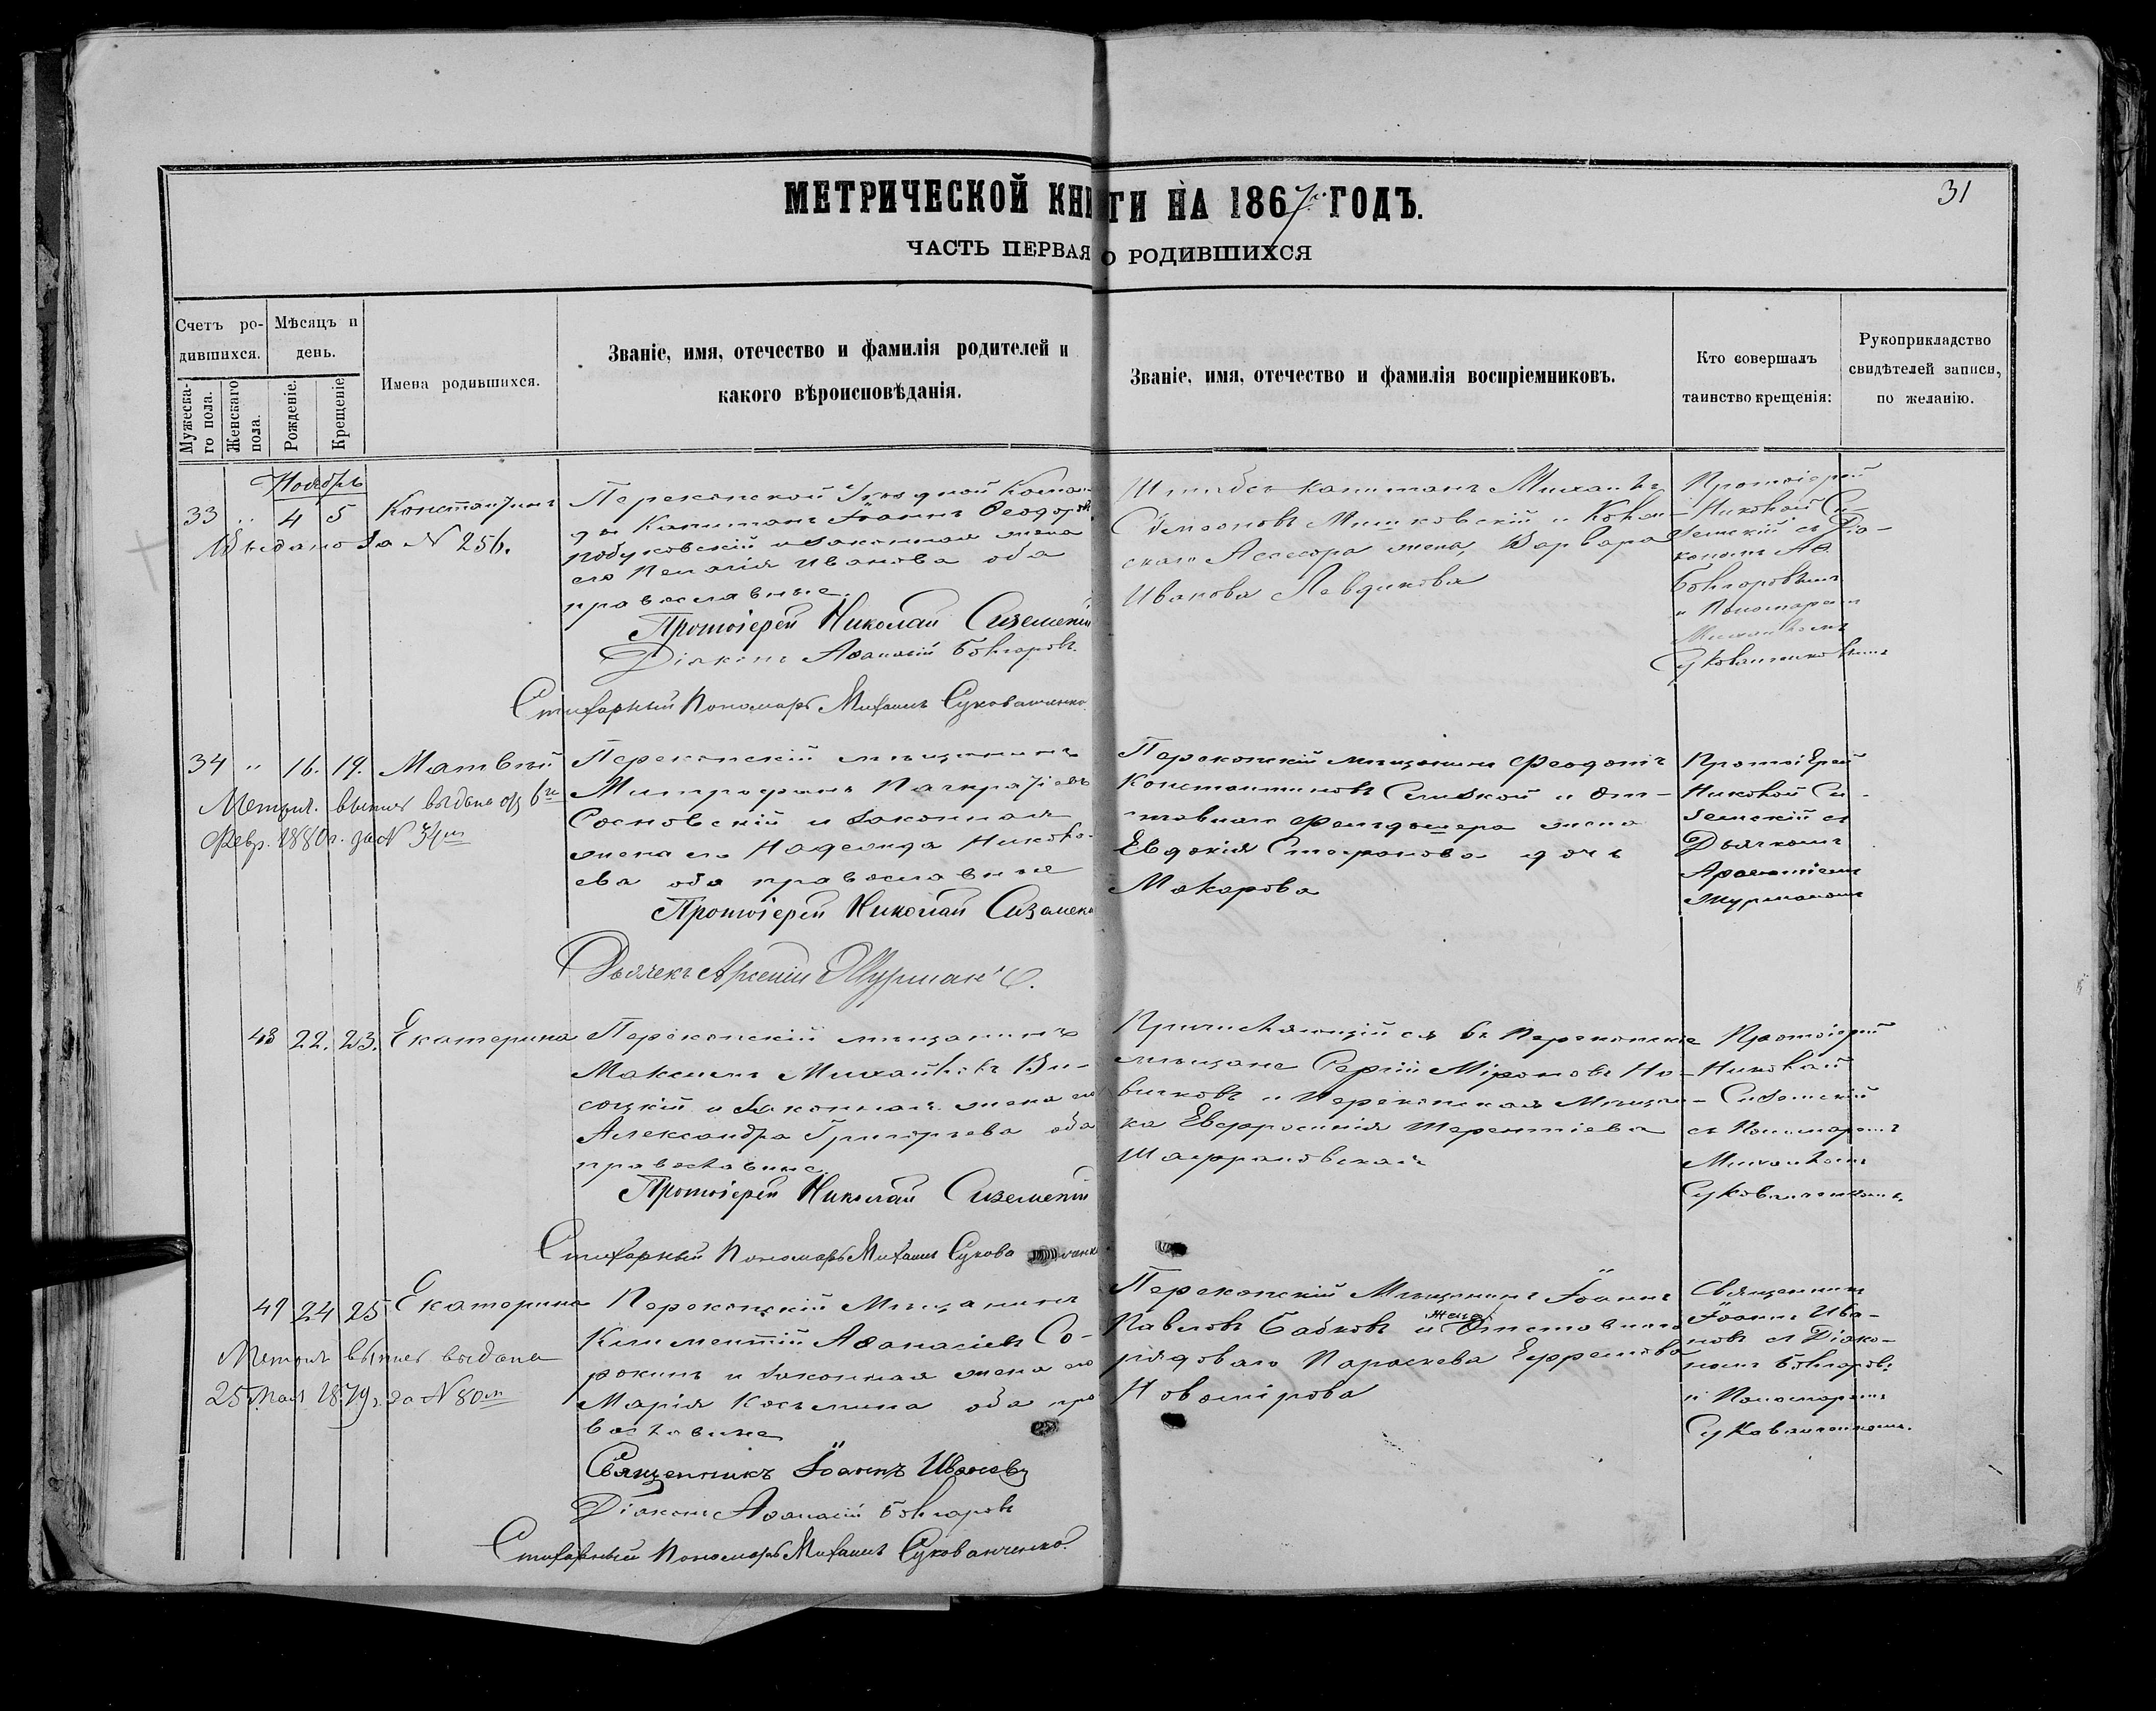 МЕТРИЧЕСКОЙ КНИГИ НА 1867й ГОДЪ.
31
ЧАСТЬ ПЕРВАЯ О РОДИВШИХСЯ
Счетъ ро-
дившихся.
Мужеска-
го пола.
Женскаго
пола.
Мѣсяцъ и
день.
Рожденіе.
Крещеніе
Имена родившихся.
Званіе, имя, отечество и фамилія родителей и
какого вѣроисповѣданія.
Званіе, имя, отечество и фамилія воспріемниковъ.
Кто совершалъ
таинство крещенія:
Рукоприкладство
свидѣтелей записи,
по желанію.
Ноябрь
33 " 4 5 Константинъ
Выдано за N 256.
Перекопской Уѣздной Коман-
ды Капитанъ Іоаннъ Ѳеодоров
и законная жена
его Пелагія Иванова оба
православные.
Протоіерей Николай Сиземскій
Діаконъ Аѳанасій Болгаровъ.
Стихарный Пономарь Михаилъ Суковатченко.
Штабсъ-Капитанъ Михаилъ
Симеоновъ Мишковскій и Колле-
скаго Ассесора жена, Варвара
Иванова Левдикова
Протоіерей
Николай Си-
земскій съ Діа-
кономъ Аѳ.
Болгаровымъ
и Пономаремъ
Михаиломъ
34 " 16. 19. Матвѣй
Метрич. выпись выдана отъ 6го
Февр. 1880 г. за N 34м
Перекопскій мѣщанинъ
Митрофанъ Панкратіевъ
Сосновскій и законная
жена его Надежда Никола-
ева оба православные
Протоіерей Николай Сиземскі
Дьячекъ Арсеній Журманъ
Перекопскій мѣщанинъ Феодотъ
Константиновъ и От-
ставнаго Фельдшера жена
Евдокія Стефанова дочь
Макарова
Протоіерей
Николай Си-
земскій съ
Дьячкомъ
48 22. 23. Екатерина
Перекопскій мѣщанинъ
Максимъ Михайловъ Вы-
соцкій и законная жена его
Александра Григорьева оба
православные.
Протоіерей Николай Сиземскій
Стихарный Пономарь Михаилъ Сукова ченк
Причисляющійся въ Перекопскіе
мѣщане Сергій Міроновъ Но-
виковъ и Перекопская Мѣщан-
ка Евфросинія Терентіева
Шафрановская
Протоіерей
Николай
Сиземскій
съ Пономаремъ
Михаиломъ
Суковатченкомъ.
49 24 25 Екатерина
Метрич выпись выдана
25 Мая 1879 г. за N 80м
Перекопскій Мѣщанинъ
Климентій Аѳанасіевъ Со-
рокинъ и законная жена его
Марія Косьмина оба пра
вославные
Священникъ Іоаннъ Ивановъ
Діаконъ Аѳанасій Болгаровъ
Стихарный Пономарь Михаилъ Суковатченко.
Перекопскій Мѣщанинъ Іоаннъ
Павловъ Бабковъ и жена Отставнаго
рядоваго Параскева Ефремова
Новомірова
Священникъ
Іоаннъ Ива-
новъ съ Діако-
номъ Болгаров:
и Пономаремъ
Суковатченкомъ.